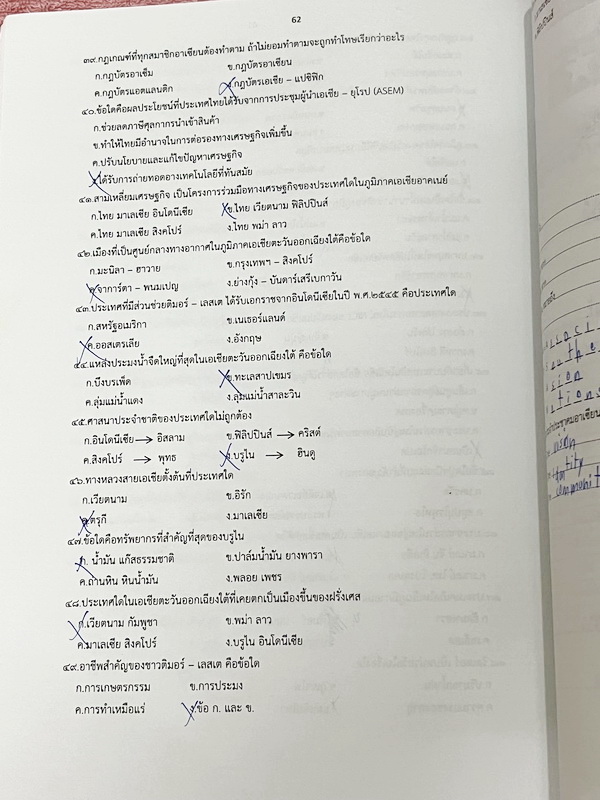 62
๓๙.กฎเกณฑ์ที่ทุกสมาชิกอาเซียนต้องทำตาม ถ้าไม่ยอมทำตามจะถูกทำโทษเรียกว่าอะไร
ก.กฎบัตรอาเซ็ม ข.กฎบัตรอาเซียน
ค.กฎบัตรแอตแลนติก ง.กฎบัตรเอเชีย – แปซิฟิก
๔๐.ข้อใดคือผลประโยชน์ที่ประเทศไทยได้รับจากการประชุมผู้นำเอเชีย – ยุโรป (ASEM)
ก.ช่วยลดภาษีศุลกากรนำเข้าสินค้า
ข.ทำให้ไทยมีอำนาจในการต่อรองทางเศรษฐกิจเพิ่มขึ้น
ค.ปรับนโยบายและแก้ไขปัญหาเศรษฐกิจ
ง.ได้รับการถ่ายทอดอางเทคโนโลยีที่ทันสมัย
๔๑.สามเหลี่ยมเศรษฐกิจ เป็นโครงการร่วมมือทางเศรษฐกิจของประเทศใดในภูมิภาคเอเชียอาคเนย์
ก.ไทย มาเลเซีย อินโดนีเซีย ข.ไทย เวียดนาม ฟิลิปปินส์
ค.ไทย มาเลเซีย สิงคโปร์ ง.ไทย พม่า ลาว
๔๒.เมืองที่เป็นศูนย์กลางทางอากาศในภูมิภาคเอเชียตะวันออกเฉียงใต้คือข้อใด
ก.มะนิลา – ฮาวาย ข.กรุงเทพฯ – สิงคโปร์
ค.จาการ์ตา – พนมเปญ ง.ย่างกุ้ง – บันดาร์เสรีเบกาวัน
๔๓.ประเทศที่มีส่วนช่วยติมอร์ – เลสเต ได้รับเอกราชจากอินโดนีเซียในปี พ.ศ.๒๕๔๕ คือประเทศใด
ก.สหรัฐอเมริกา ข.เนเธอร์แลนด์
ค.ออสเตรเลีย ง.อังกฤษ
๔๔.แหล่งประมงน้ำจืดใหญ่ที่สุดในเอเชียตะวันออกเฉียงใต้ คือข้อใด
ก.บึงบรเพ็ด ข.ทะเลสาปเขมร
ค.ลุ่มแม่น้ำแดง ง.ลุ่มแม่น้ำสาละวิน
๔๕.ศาสนาประจำชาติของประเทศใดไม่ถูกต้อง
ก.อินโดนีเซีย → อิสลาม ข.ฟิลิปปินส์ → คริสต์
ค.สิงคโปร์ → พุทธ ง.บรูไน → ฮินดู
๔๖.ทางหลวงสายเอเชียตั้งต้นที่ประเทศใด
ก.เวียดนาม ข.อิรัก
ค.ตรุกี ง.มาเลเซีย
๔๗.ข้อใดคือทรัพยากรที่สำคัญที่สุดของบรูไน
ก. น้ำมัน แก๊สธรรมชาติ ข.ปาล์มน้ำมัน ยางพารา
ค.ถ่านหิน หินน้ำมัน ง.พลอย เพชร
๔๘.ประเทศใดในเอเชียตะวันออกเฉียงใต้ที่เคยตกเป็นเมืองขึ้นของฝรั่งเศส
ก.เวียดนาม กัมพูชา ข.พม่า ลาว
ค.มาเลเซีย สิงคโปร์ ง.บรูไน อินโดนีเซีย
๔๙.อาชีพสำคัญของชาวติมอร์ – เลสเต คือข้อใด
ก.การเกษตรกรรม ข.การประมง
ค.การทำเหมือแร่ ง.ข้อ ก. และ ข.